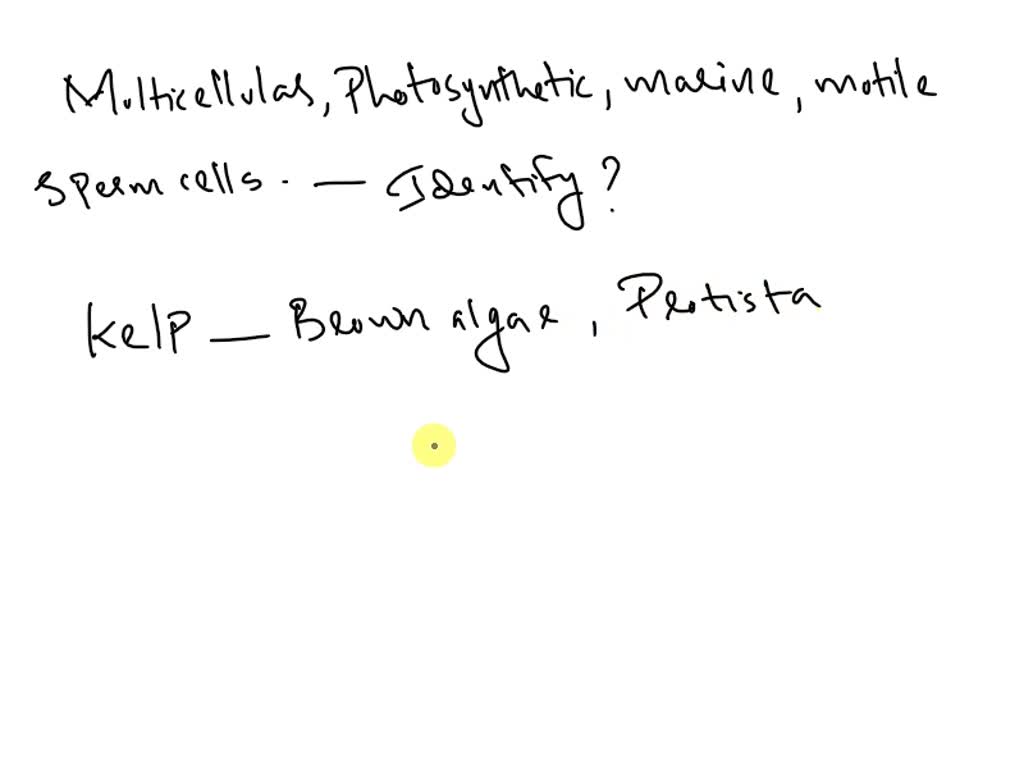 Multicellular, Photosynthetic, marine, motile
sperm cells. — Identify?
Kelp — Brown algae, Protista